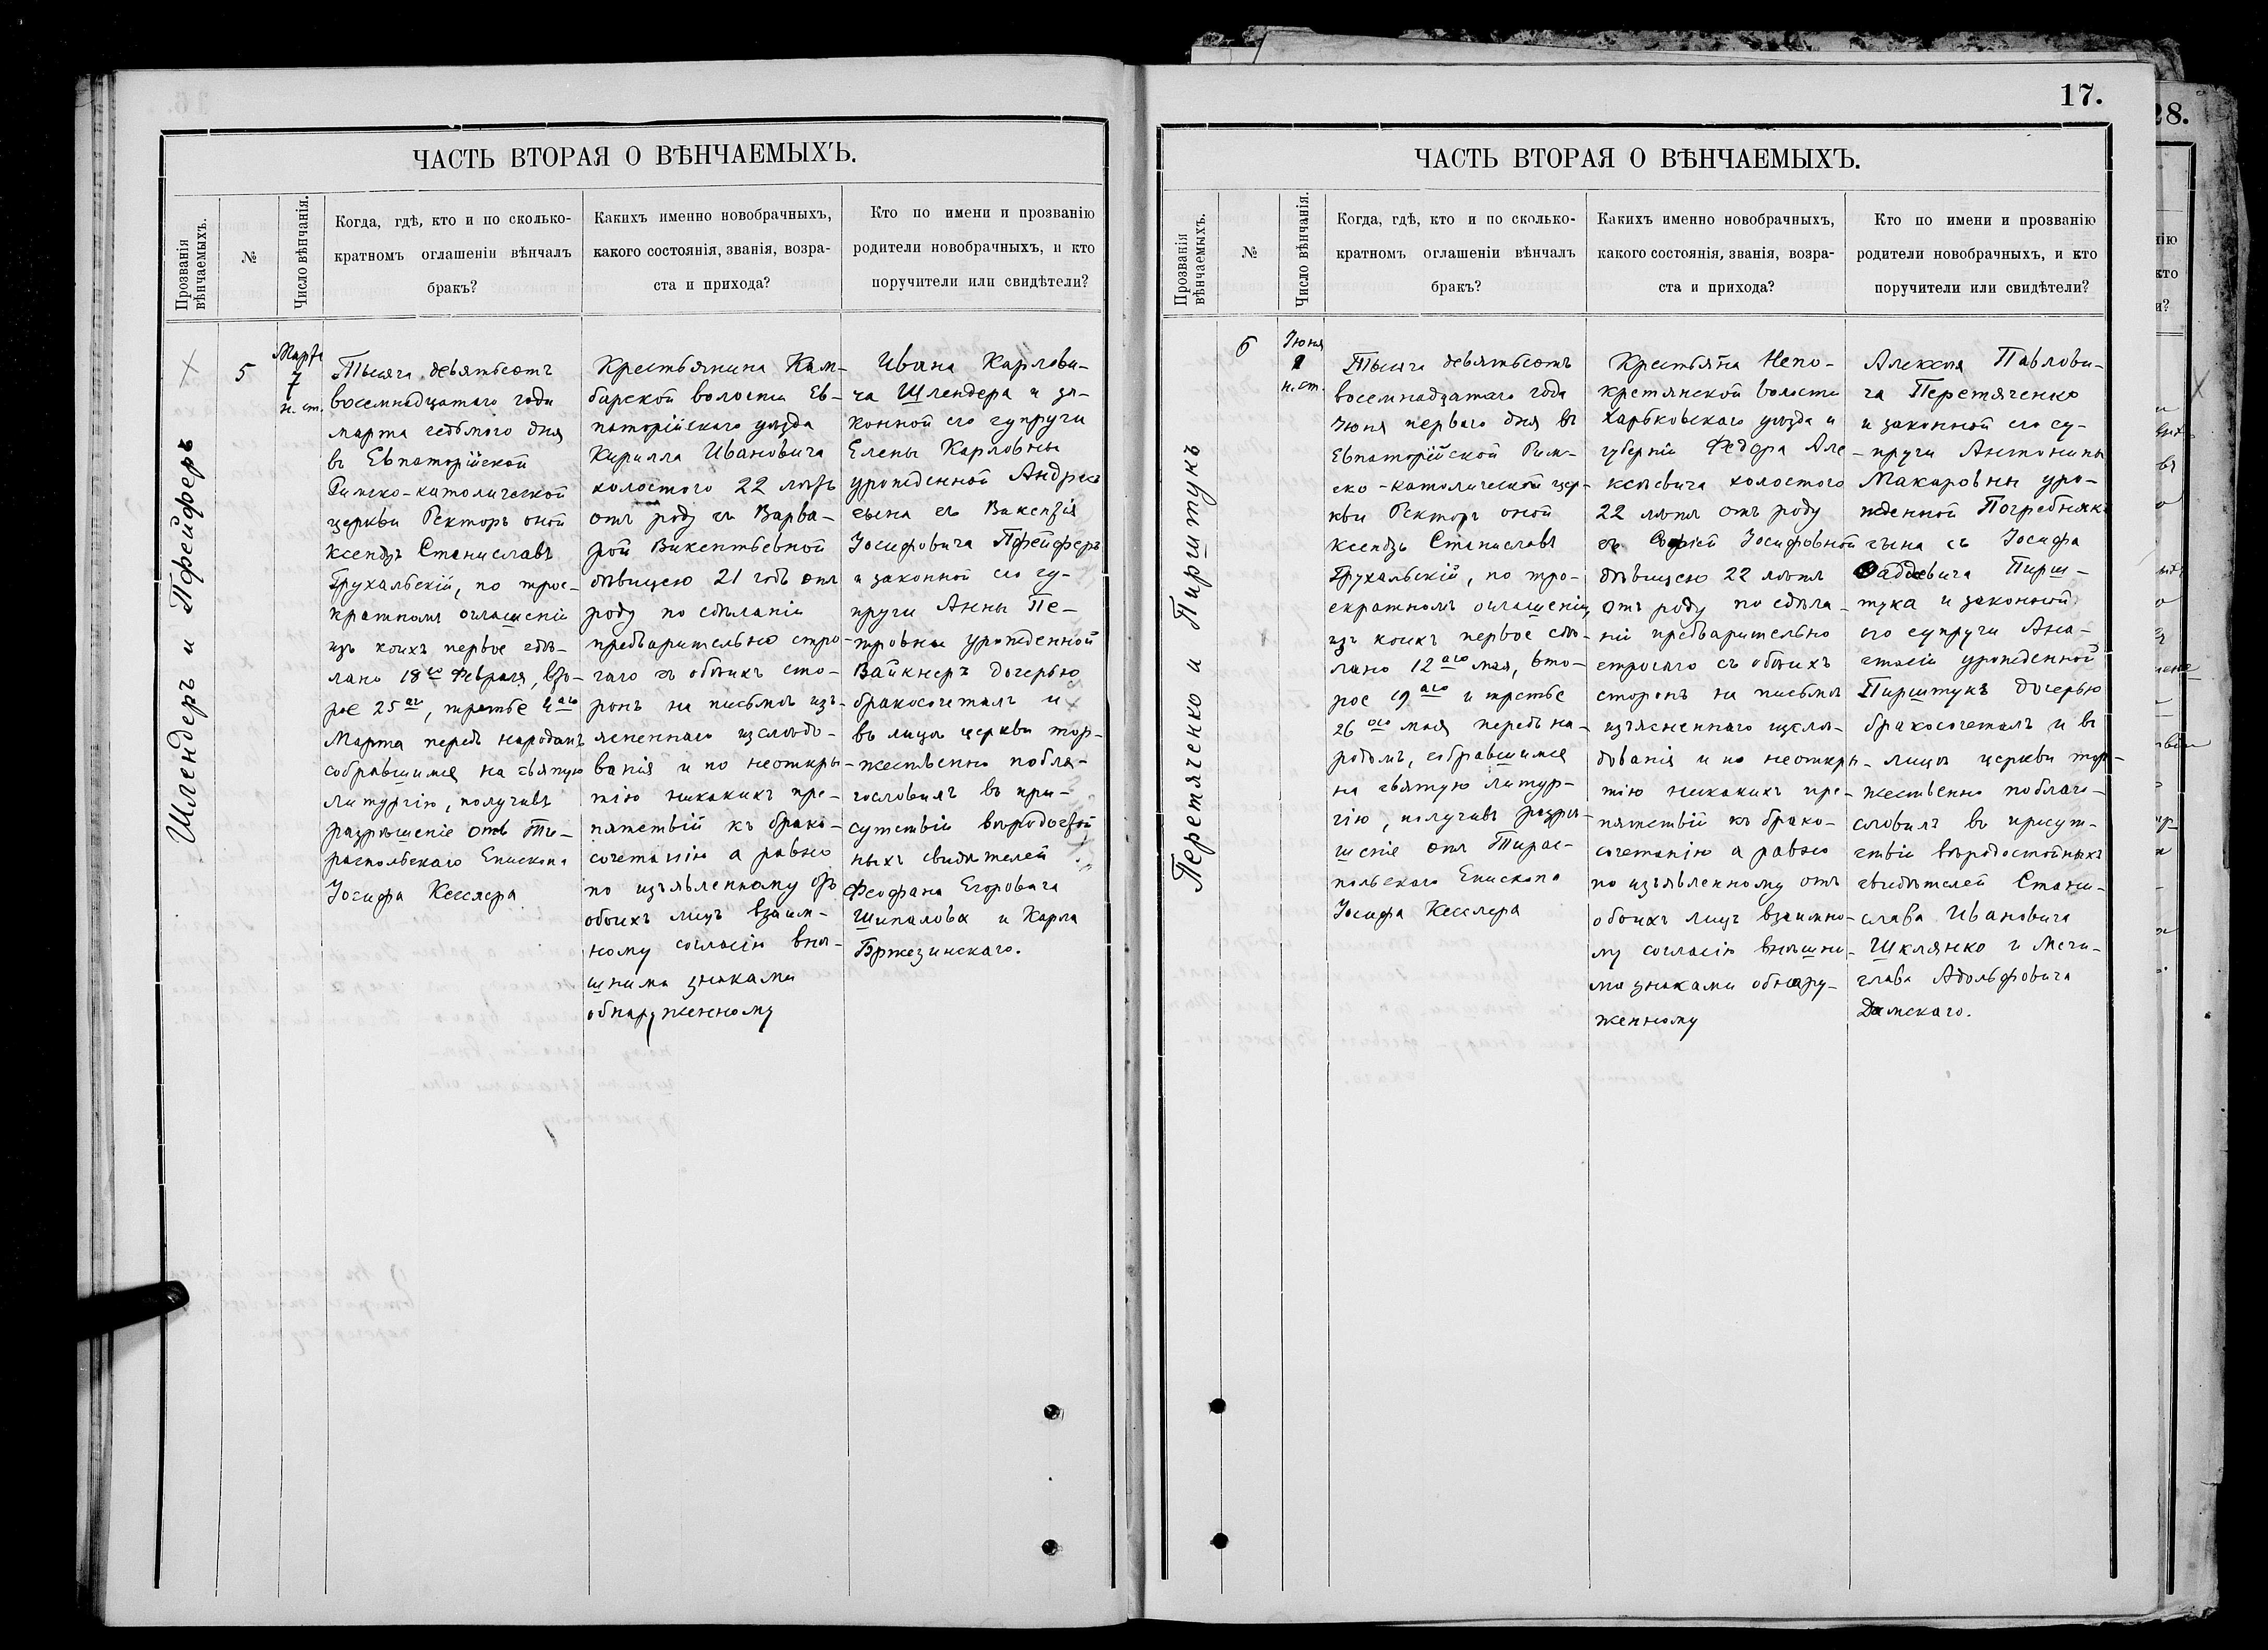 ЧАСТЬ ВТОРАЯ О ВѢНЧАЕМЫХЪ.
Прозванія вѣнчаемыхъ.
№
Число вѣнчанія.
Когда, гдѣ, кто и по сколько-
кратномъ оглашеніи вѣнчалъ
бракъ?
Какихъ именно новобрачныхъ,
какого состоянія, званія, возра-
ста и прихода?
Кто по имени и прозванію
родители новобрачныхъ, и кто
поручители или свидѣтели?
Шлендеръ и Пфейферъ
5
Марта
7
н. ст.
Тысяча девятьсотъ
восемнадцатаго года
марта седьмого дня
въ Евпаторійской
Римско-католической
церкви Ректоръ оной
Ксендзъ Станиславъ
Грухальскій, по трое-
кратномъ оглашеніи
изъ коихъ первое сдѣ-
лано 18го Февраля, вто-
рое 25го, третье 4аго
Марта передъ народамъ
собравшимся на святую
литургію, получивъ
разрѣшеніе отъ Ти-
распольскаго Епископа
Іосифа Кесслера
Крестьянина Кам-
барской волости Ев-
паторійскаго уѣзда
Кирилла Ивановича
холостого 22 лѣтъ
отъ роду съ Варва-
рой Викентьевной
дѣвицею 21 годъ отъ
роду по сдѣланіи
предварительно стро-
гаго съ обоихъ сто-
ронъ на письмѣ изъ-
ясненнаго изслѣдо-
ванія и по неоткры-
тію никакихъ пре-
пятствій къ брако-
сочетанію а равно
по изъявленному отъ
обоихъ лицъ взаим-
ному согласію внѣ-
шними знаками
обнаруженному
Ивана Карлови-
ча Шлендера и за-
конной его супруги
Елены Карловны
урожденной Андресъ
сына съ Викентія
Іосифовича Пфейферъ
и законной его су-
пруги Анны Пе-
тровны урожденной
Вайкнеръ дочерью
бракосочеталъ и
въ лицѣ церкви тор-
жественно побла-
гословилъ въ при-
сутствіи вѣродостой
ныхъ свидѣтелей
Феофана Егоровича
Шипалова и Карла
Бржезинскаго.
17.
ЧАСТЬ ВТОРАЯ О ВѢНЧАЕМЫХЪ.
Прозванія вѣнчаемыхъ.
№
Число вѣнчанія.
Когда, гдѣ, кто и по сколько-
кратномъ оглашеніи вѣнчалъ
бракъ?
Какихъ именно новобрачныхъ,
какого состоянія, званія, возра-
ста и прихода?
Кто по имени и прозванію
родители новобрачныхъ, и кто
поручители или свидѣтели?
Перетяченко и Пирштукъ
6
Іюня
1
н. ст.
Тысяча девятьсотъ
восемнадцатаго года
Іюня перваго дня въ
Евпаторійской Рим-
ско-католической цер-
кви Ректоръ оной
Ксендзъ Станиславъ
Грухальскій, по тро-
екратномъ оглашеніи,
изъ коихъ первое сдѣ-
лано 12аго мая, вто-
рое 19аго и третье
26аго мая передъ на-
родомъ, собравшимся
на святую литур-
гію, получивъ разрѣ-
шеніе отъ Тирас-
польскаго Епископа
Іосифа Кесслера
Крестьяна Непо-
кретянской волости
Харьковскаго уѣзда и
губерніи Федора Але-
ксѣевича холостого
22 лѣтъ отъ роду
съ Софіей Іосифовной
дѣвицею 22 лѣтъ
отъ роду по сдѣла-
ніи предварительно
строгаго съ обоихъ
сторонъ на письмѣ
изъясненнаго изслѣ-
дованія и по неоткры-
тію никакихъ пре-
пятствій къ брако-
сочетанію а равно
по изъявленному отъ
обоихъ лицъ взаимно-
му согласію внѣшни-
ми знаками обнару-
женному
Алексѣя Павлови-
ча Перетяченко
и законной его су-
пруги Антонины
Макаровны уро-
жденной Погребнякъ
сына съ Іосифа
Фаддевича Пирш-
тука и законной
его супруги Ана-
стасіи урожденной
Пирштукъ дочерью
бракосочеталъ и въ
лицѣ церкви тор-
жественно поблаго-
словилъ въ присут-
ствіи вѣродостойныхъ
свидѣтелей Стани-
слава Ивановича
Шклянко и Мечи-
слава Адольфовича
Дамскаго.
28.